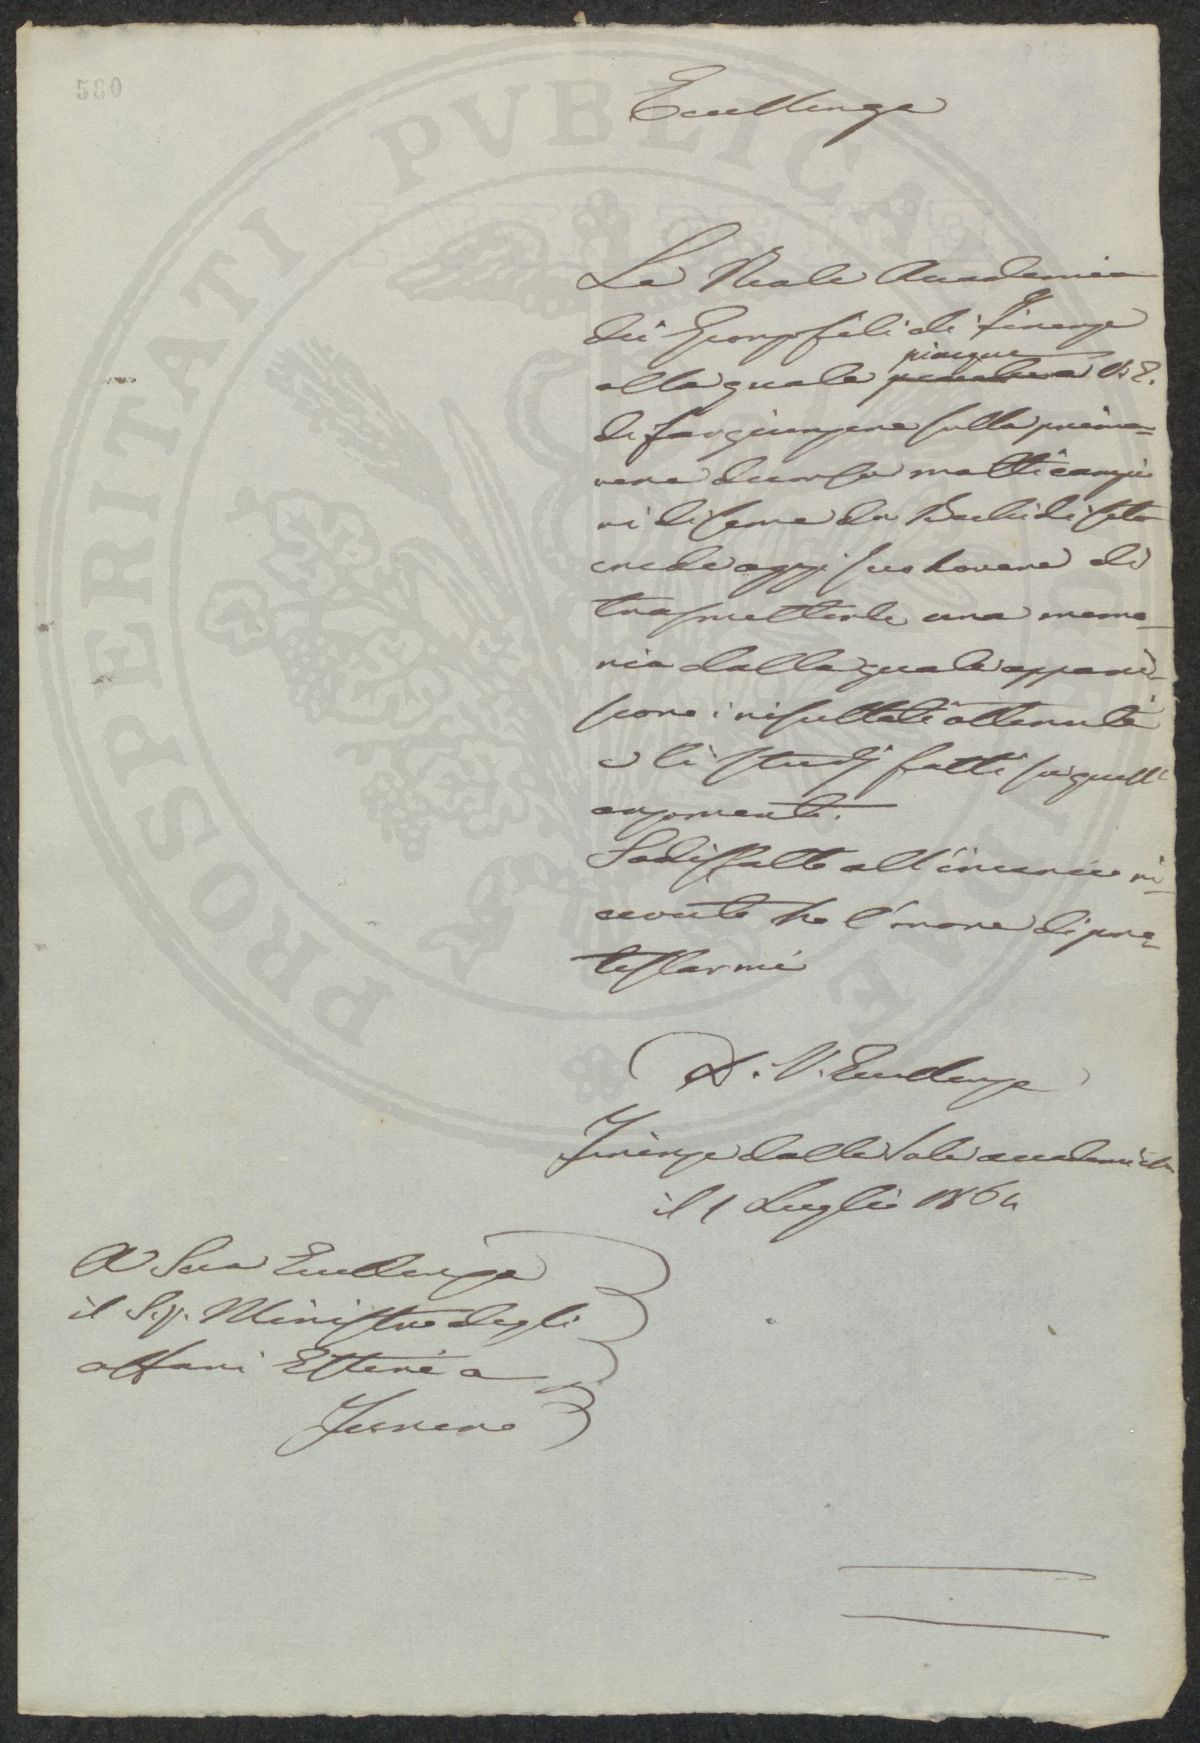 580
Eccellenza
La Reale Accademia
dei Georgofili di Firenze
piacque
alla quale V. E.
di far giungere nella prima-
vera decorsa molti campio
ni di seme da Bachi di seta
crede oggi suo dovere di
trasmetterle una memo-
ria dalla quale appari-
scono i risultati ottenuti
e li studj fatti su quell'
argomento.
Sodisfatto all'incarico ri-
cevuto ho l'onore di pro-
testarmi
D. V. Eccellenza
Firenze dalle Sale accademiche
il 1 Luglio 1864
A Sua Eccellenza
il Sig. Ministro degli
affari Esteri a
Torino
PROSPERITATI PVBLICAE AVGENDAE